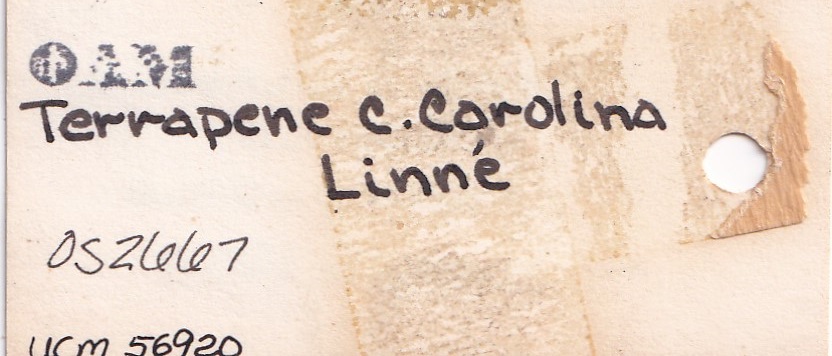 AM
Terrapene c. Carolina
Linné
OS2667
UCM 56920